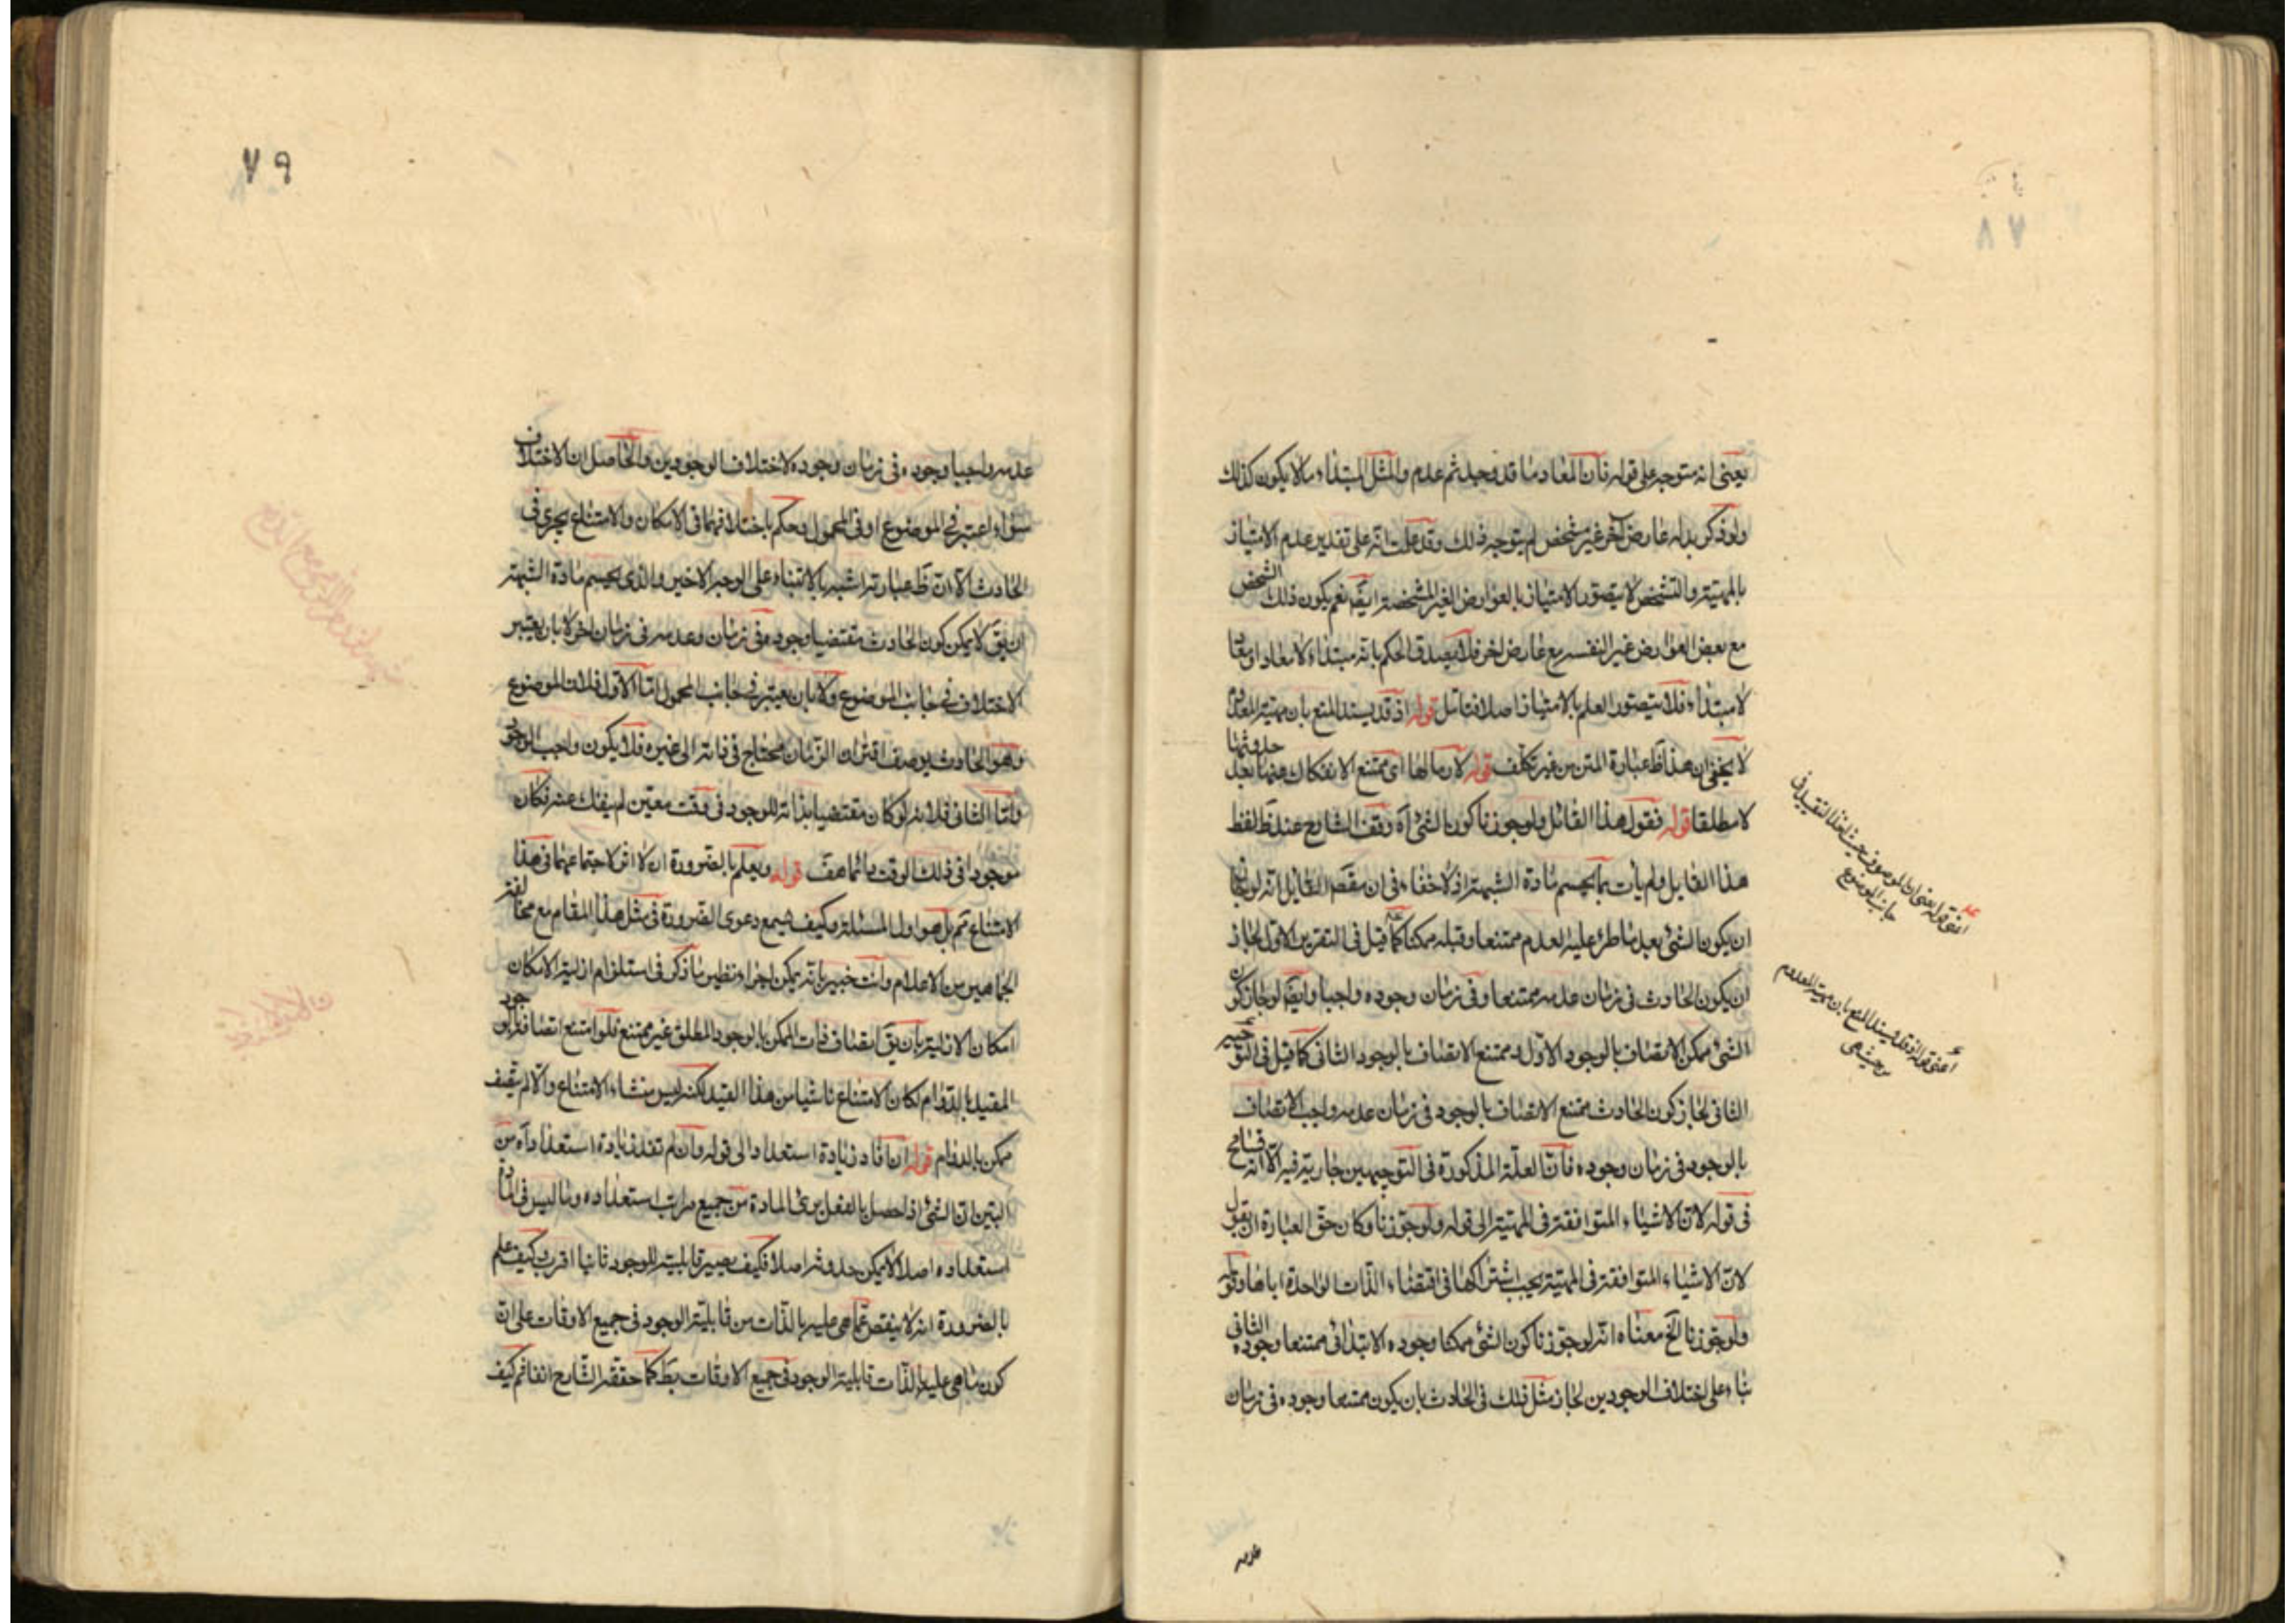 ٧٨
يعنى انه متوجه على قوله فان المعاد ما قد وجد ثم عدم والمثل المبتداء ما لا يكون كذلك
ولو ذكر بدله عارض آخر غير مشخص لم يتوجه ذلك وقد علمت انه على تقدير عدم الامتياز
بالمهيته والتشخص لا يتصور الامتياز بالعوارض الغير المشخصة ايضا نعم يكون ذلك الشخص
مع بعض العوارض غير النفسه مع عارض اخر فلا يصدق الحكم بانه مبتداء لا معاد او معاد
لا مبتداء فلا يتصور العلم بالامتياز اصلا فتامل قوله اذ قد يسند المنع بان مهية المعدوم
لا يخفى ان هذا ظ عبارة المتن من غير تكلف قوله لان مالها اى ممتنع الانفكاك عنها بعد حدوثها
لا مطلقا قوله فنقول هذا القائل ولو جوزنا كون الشئ آه وقف الشارح عند ظ لفظ
هذا القايل ولم يأت بما يحسم مادة الشبهة اذ لا خفاء فى ان مقصد القايل انه لو جاز
ان يكون الشئ بعد ما طرء عليه العدم ممتنعا وقبله ممكنا كما قيل فى التقرير الاول لجاز
ان يكون الحادث فى زمان عدمه ممتنعا وفى زمان وجوده واجبا وايضا لو جاز كون
الشئ ممكن الاتصاف بالوجود الاول وممتنع الاتصاف بالوجود الثانى كما قيل فى التوجيه
الثانى لجاز كون الحادث ممتنع الاتصاف بالوجود فى زمان عدمه واجب الاتصاف
بالوجود فى زمان وجوده فان العلة المذكورة فى التوجيهين جارية فيه الا انه
فى قوله لان الاشياء المتوافقة فى المهية الى قوله ولو جوزنا وكان حق العبارة ان يقول
لان الاشياء المتوافقة فى المهية يجب اشتراكها فى اقتضاء الذات الواحدة اياها وقوله
ولو جوزنا الخ معناه انه لو جوزنا كون الشئ ممكنا وجوده الابتدائى ممتنعا وجوده الثانى
بناء على اختلاف الوجودين لجاز مثل ذلك فى الحادث بان يكون ممتنعا وجوده فى زمان
عدمه
اعنى قوله اذ قد يسند المنع بان مهية المعدوم
٧٩
عدمه واجبا وجوده فى زمان وجوده لاختلاف الوجودين والحاصل ان الاختلاف
سواء اعتبر فى الموضوع او فى المحمول وحكم باختلافهما فى الامكان والامتناع يجرى فى
الحادث الا ان ظ عبارته اشبه بالابتناء على الوجه الاخير والذى يحسم مادة الشبهة
ان يق لا يمكن كون الحادث مقتضيا وجوده فى زمان وعدمه فى زمان اخر لا بان يعتبر
الاختلاف فى جانب الموضوع ولا بان يعتبر فى جانب المحمول اما الاول فلان الموضوع
وهو الحادث بوصف اقتران الزمان محتاج فى ذاته الى غيره فلا يكون واجب الوجود
واما الثانى فلانه لو كان مقتضيا بذاته للوجود فى وقت معين لم ينفك عنه فكان
موجودا فى ذلك الوقت دائما هف قوله ويعلم بالضرورة ان لا اثر لاجتماعهما فى هذا
الامتناع ثم بل هو اول المسئلة وكيف يسمع دعوى الضرورة فى مثل هذا المقام مع مخالفة
الجماهير من الاعلام وانت خبير بانه يمكن اجراء نظير ما ذكر فى استلزام ازلية الامكان
امكان الازلية بان يق اتصاف ذات الممكن بالوجود المطلق غير ممتنع فلو امتنع اتصافه بالوجود
المقيد بالدوام لكان الامتناع ناشيا من هذا القيد لكنه ليس منشاء الامتناع والا لم يتصف
ممكن بالدوام قوله ان افاد زيادة استعداد الى قوله وان لم تفد زيادة استعداد آه من
البين ان الشئ اذا حصل بالفعل برئ المادة من جميع مراتب استعداده وما ليس فى المادة
استعداده اصلا لا يمكن حدوثه اصلا فكيف يصير قابليته للوجود ثانيا اقرب وكيف علم
بالضرورة انه لا ينقص عما هى عليه بالذات من قابلية الوجود فى جميع الاوقات على ان
كون ما هى عليه بالذات قابلية الوجود فى جميع الاوقات بط كما حققه الشارح انفا ثم كيف